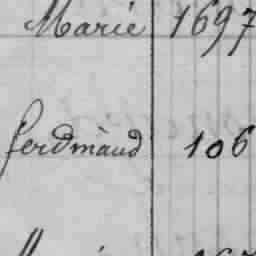 Marie 1697
ferdinand 106